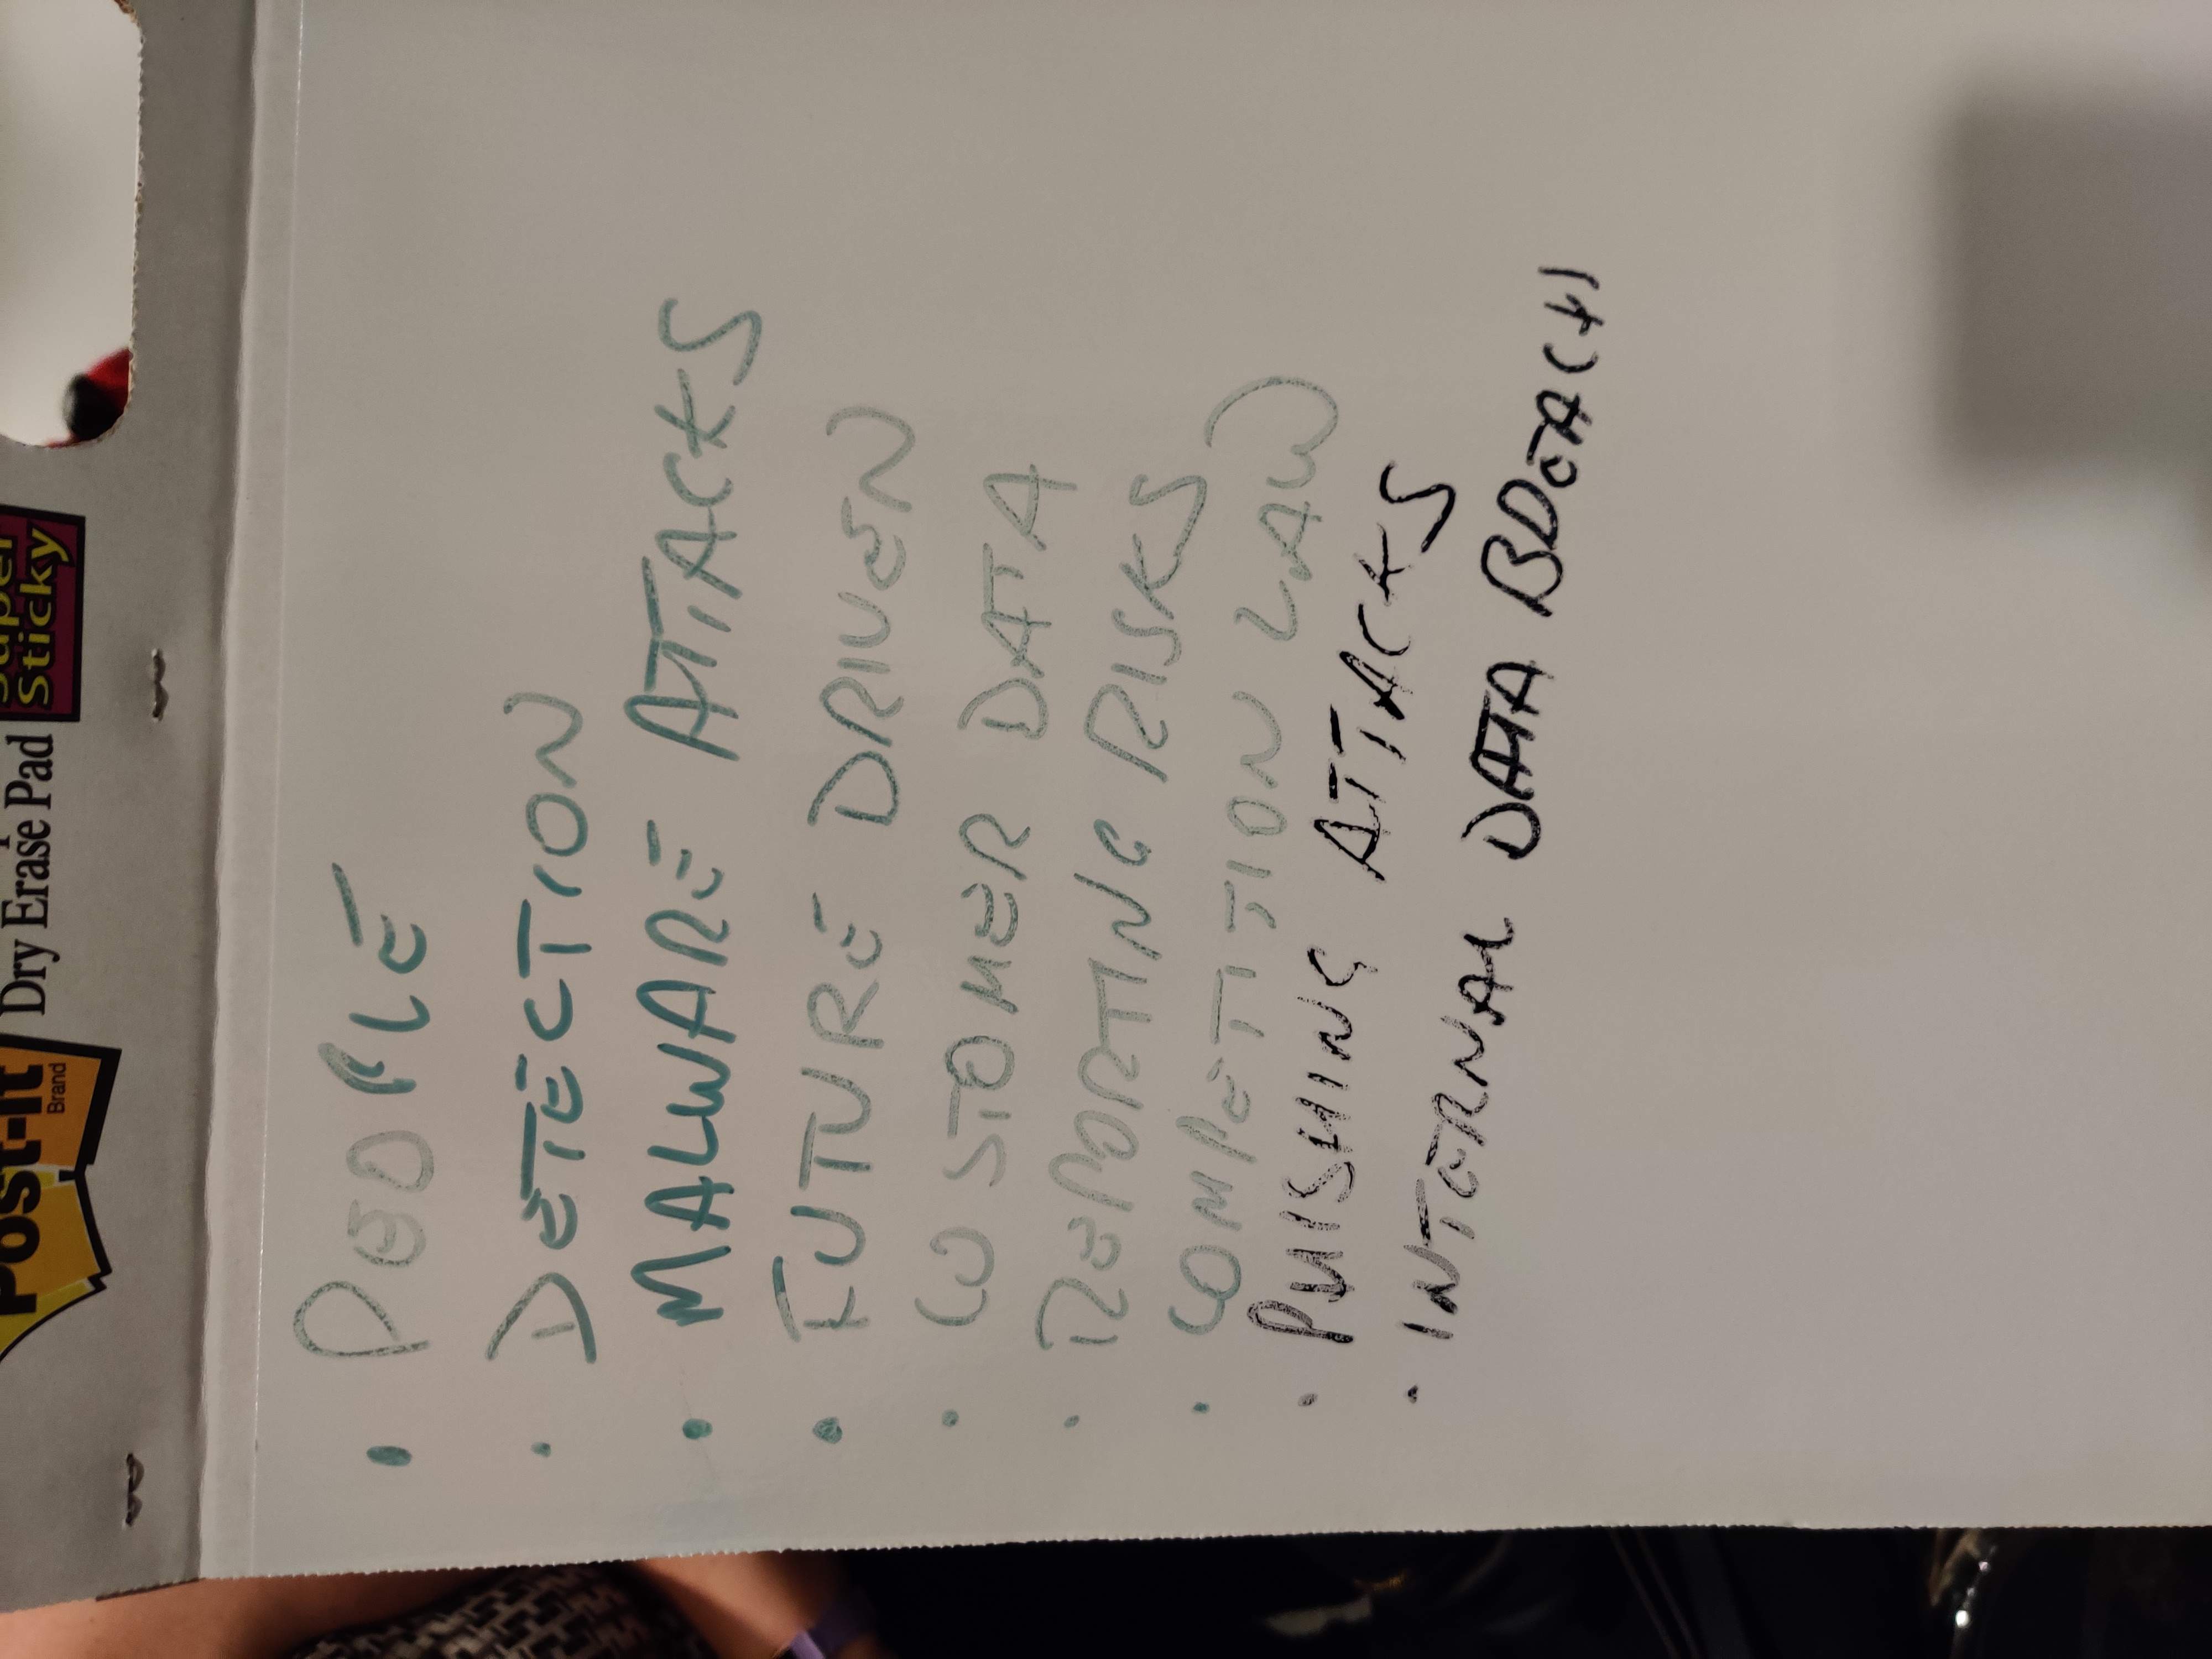 Post-it
Brand
Dry Erase Pad
Super
Sticky
• PEOPLE
• DETECTION
• MALWARE ATTACKS
• FUTURE DRIVEN
• CUSTOMER DATA
• REPORTING RISKS
• COMPETITION LAW
• PHISHING ATTACKS
• INTERNAL DATA BREACH